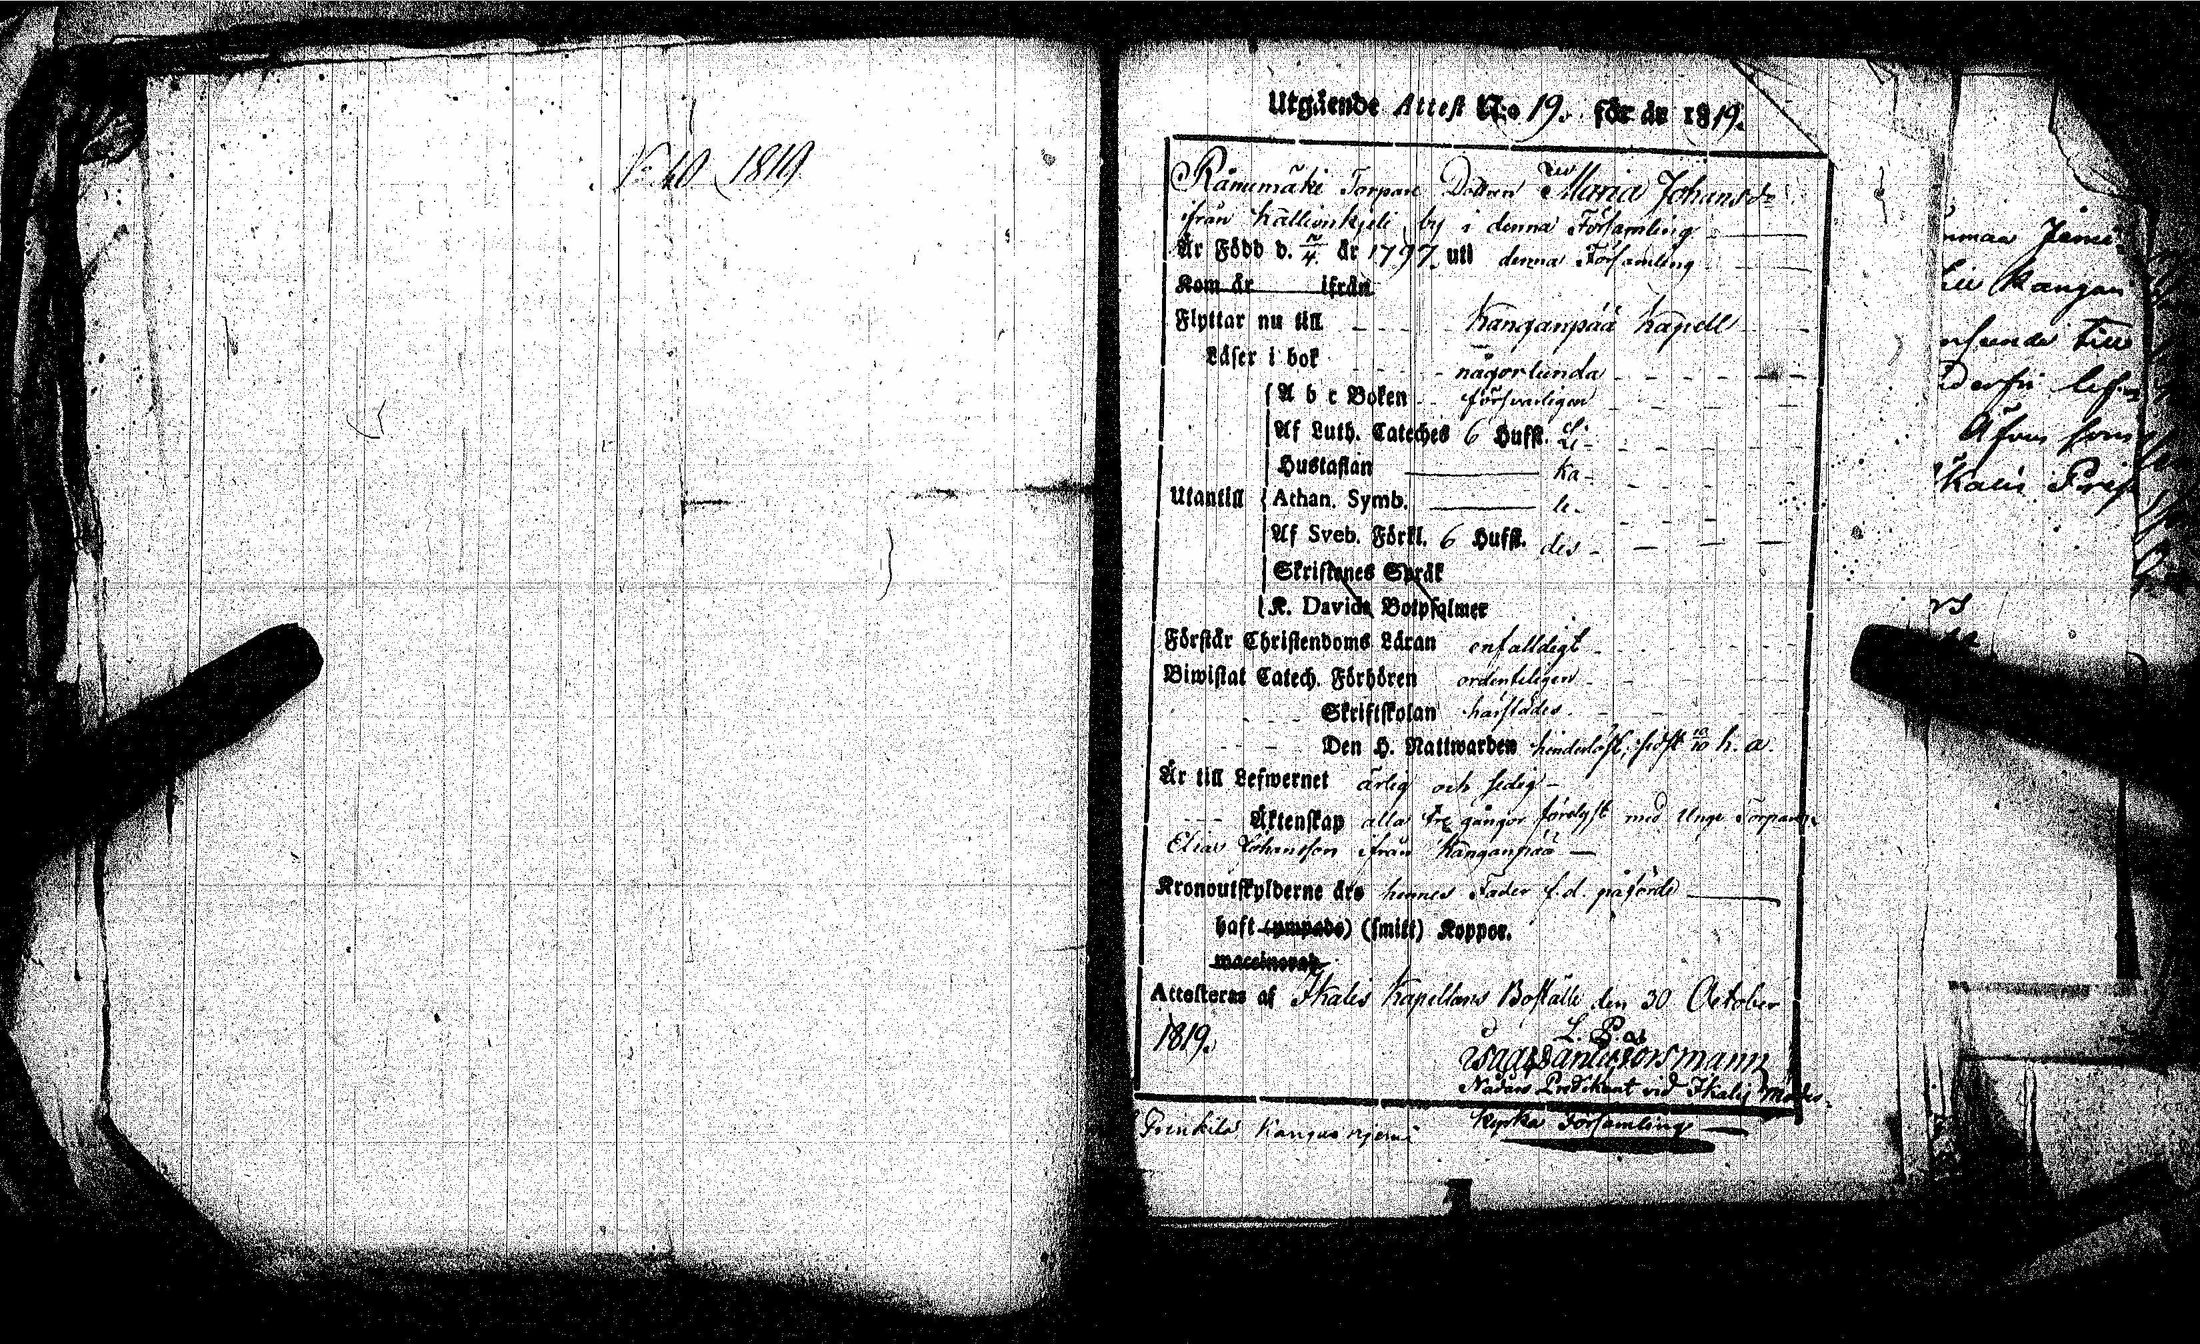 No 40 1819
Utgående Attest N:o 19. för år 1819.
Torpare Dottren Maria Johansd:r
ifrån by i denna Församling
Är Född d. år 1797. uti denna Församling
Kom år ifrån
Flyttar nu till Kanganpää Kapell
Läser i bok någorlunda
A b c Boken försvarligen
Af Luth. Cateches 6 Hufst. Li-
Hustaflan ka-
Utantill Athan. Symb. le-
Af Sveb. Förkl. 6 Hufst. des
Skriftenes Språk
K. Davids Botpsalmer
Förstår Christendoms Läran enfaldigt
Biwistat Catech. Förhören ordenteligen
Skriftskolan härstädes
Den H. Nattwarden hinderlöst, sidst 10/10 h. a.
Är till Lefwernet ärlig och sedig
Äktenskap alla tre gångor förelyst med Unge Torparen
Elias Johansson ifrån Kanganpää
Kronoutskylderne äro hennes Fader f.d. påförde
haft (ympade) (smitt) Koppor.
waccinerad
Attesteras af Ikalis Kapellans Boställe den 30 October
1819.
L. P. a
Nådårs Predikant vid Ikalis Moder-
kyrko Församling
Kangan
till
Äfven som
Ikalis